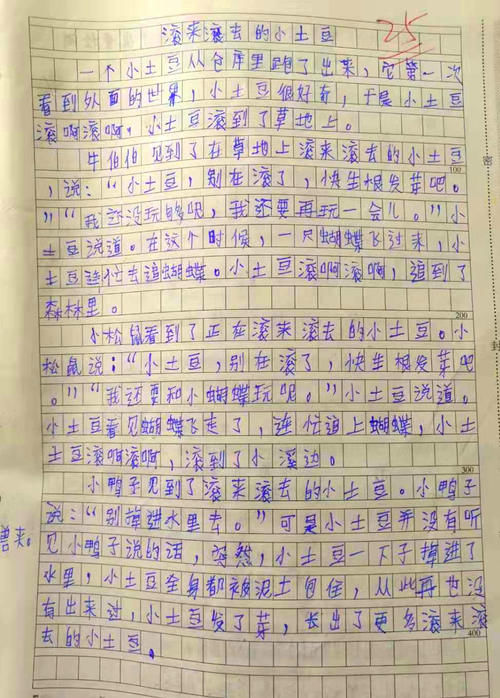 滚来滚去的小土豆
25
一个小土豆从仓库里跑了出来，它第一次
看到外面的世界，小土豆很好奇，于是小土豆
滚啊滚啊，小土豆滚到了草地上。
牛伯伯见到了在草地上滚来滚去的小土豆
100
，说：“小土豆，别在滚了，快生根发芽吧。
”“我还没玩够呢，我还要再玩一会儿。”小
土豆说道。在这个时候，一只蝴蝶飞过来，小
土豆连忙去追蝴蝶。小土豆滚啊滚啊，追到了
森林里。
200
小松鼠看到了正在滚来滚去的小土豆。小
松鼠说：“小土豆，别在滚了，快生根发芽吧
。”“我还要和小蝴蝶玩呢。”小土豆说道。
小土豆看见蝴蝶飞走了，连忙追上蝴蝶，小土
土豆滚啊滚啊，滚到了小溪边。
300
小鸭子见到了滚来滚去的小土豆。小鸭子
说：“别掉进水里去。”可是小土豆并没有听
见小鸭子说的话，突然，小土豆一下子掉进了
水里，小土豆全身都被泥土包住，从此再也没
有出来过，小土豆发了芽，长出了更多滚来滚
400
去的小土豆。
密
封